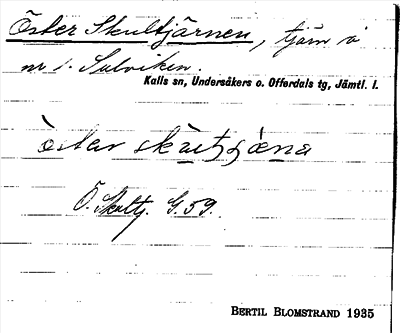 Öster Skultjärnen, tjärn v
nr 1. Sulviken.
Kalls sn, Undersåkers o. Offerdals tg, Jämtl. l.
Ö. Skultj. G.59.
BERTIL BLOMSTRAND 1935